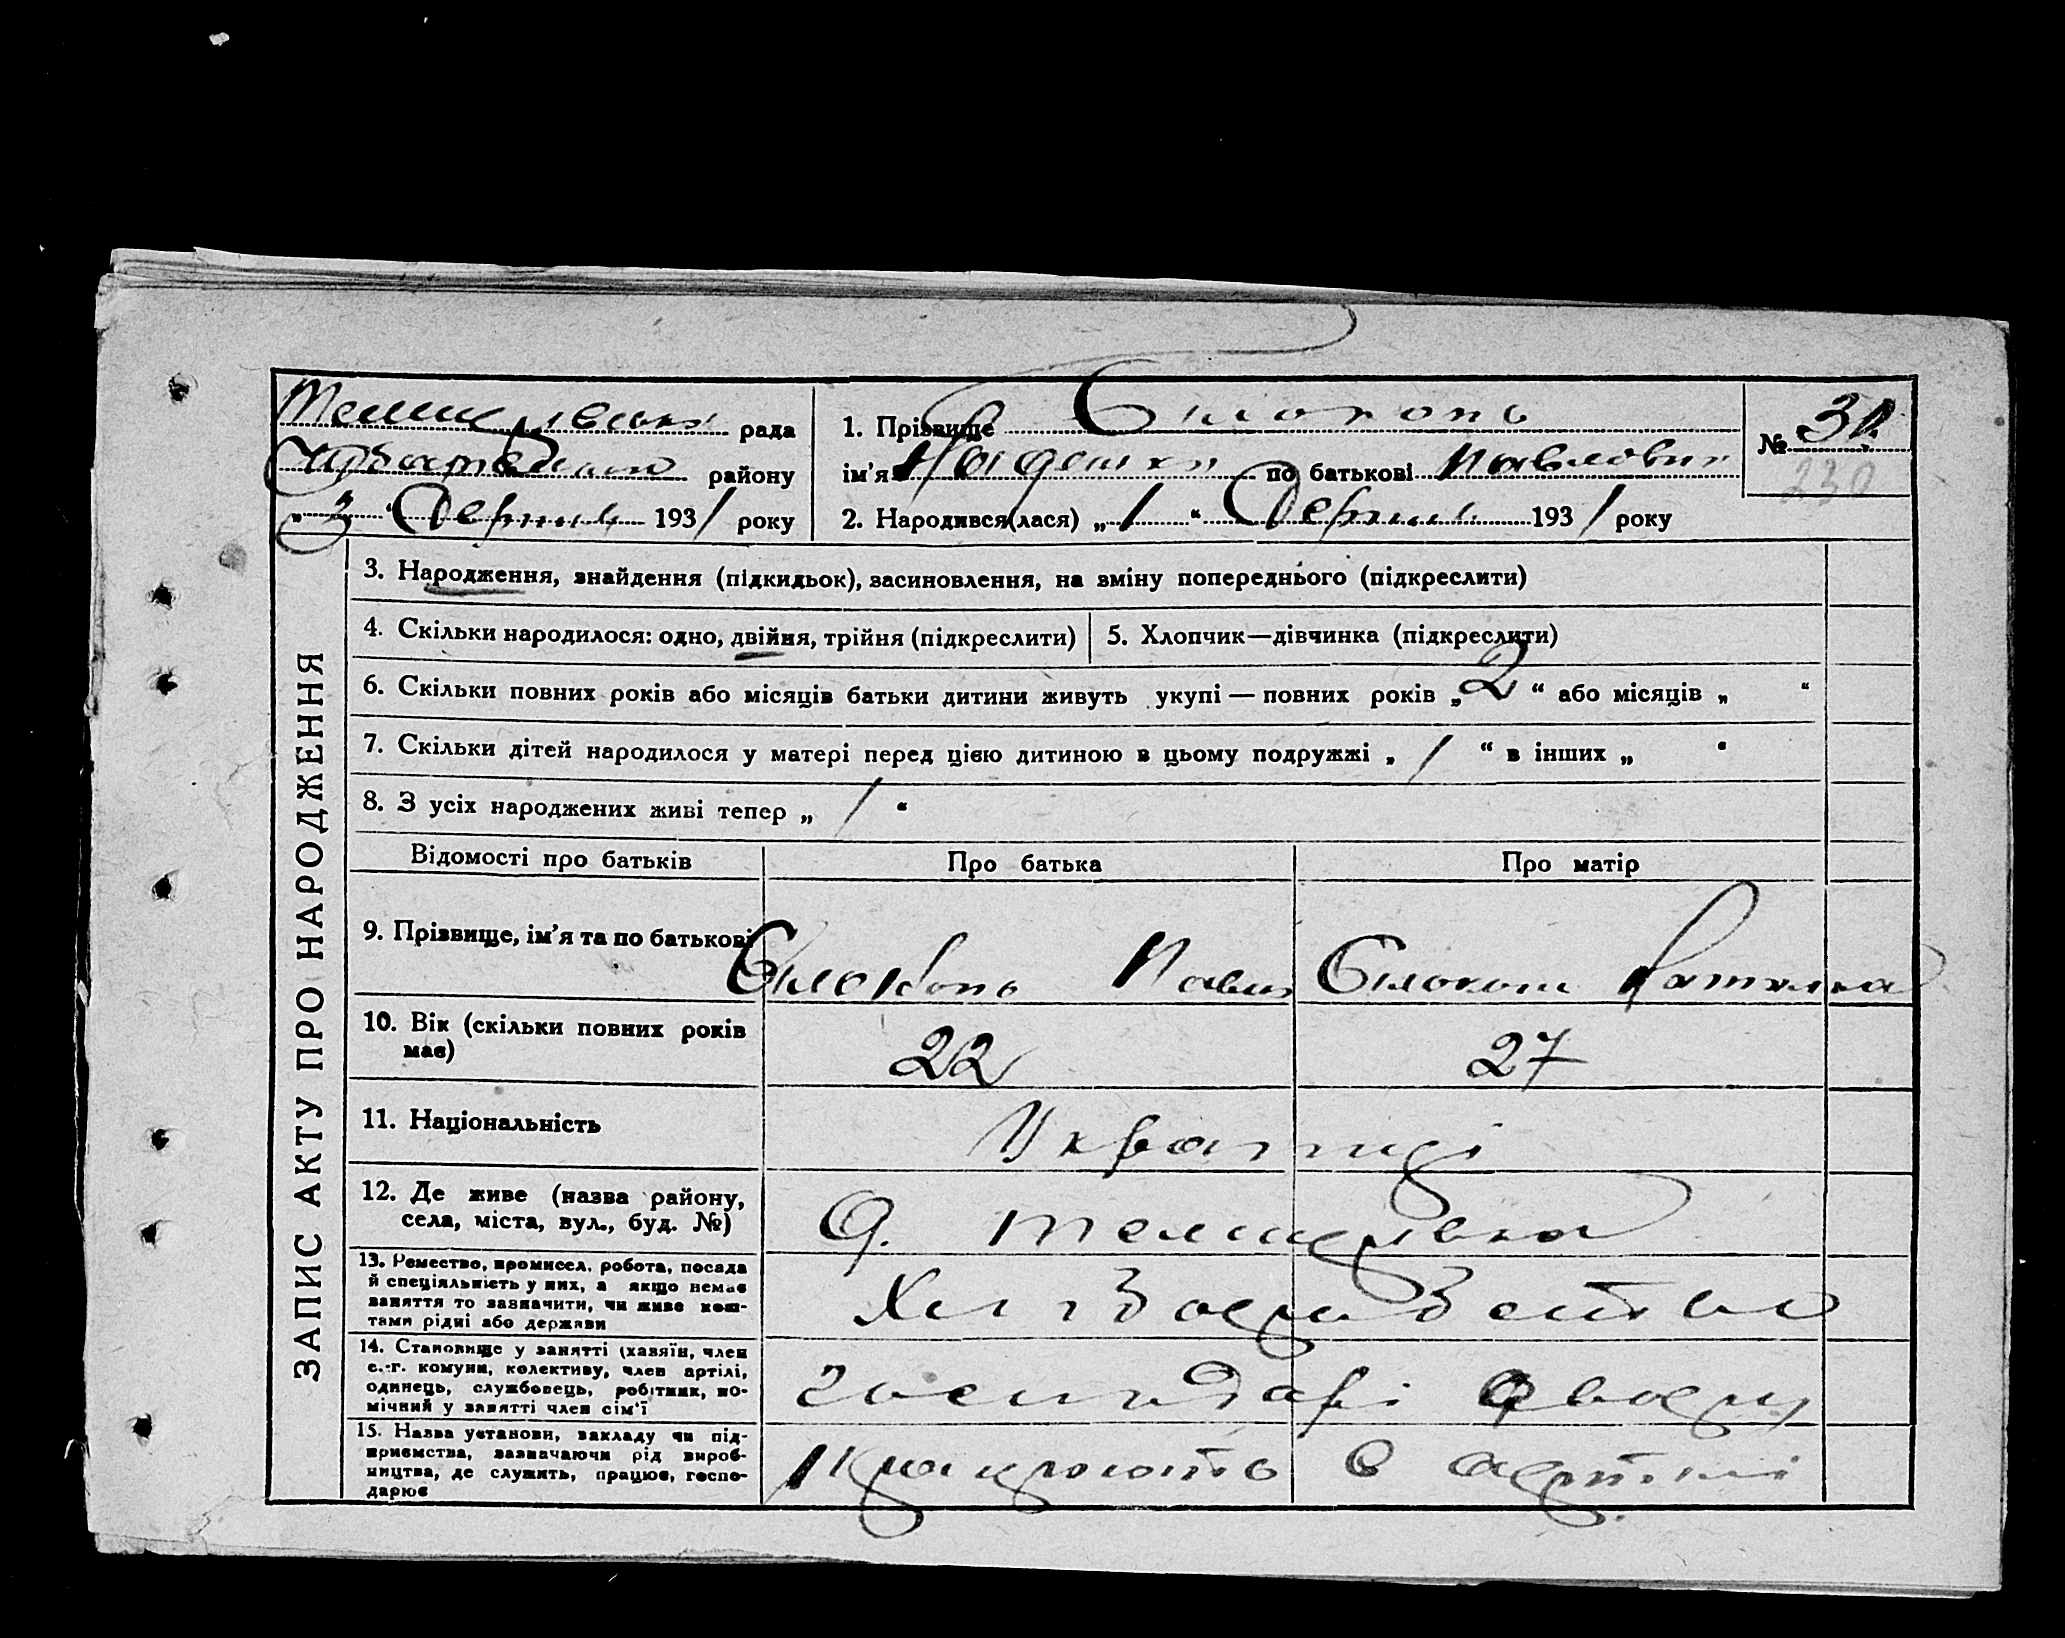 рада
району
„ 3 “ Серпня 1931 року
1. Прізвище Білоконь
ім'я по батькові Павлович
2. Народився(лася) „ 1 “ Серпня 1931 року
№
230
ЗАПИС АКТУ ПРО НАРОДЖЕННЯ
3. Народження, знайдення (підкидьок), засиновлення, на зміну попереднього (підкреслити)
4. Скільки народилося: одно, двійня, трійня (підкреслити)
5. Хлопчик—дівчинка (підкреслити)
6. Скільки повних років або місяців батьки дитини живуть укупі — повних років „ 2 “ або місяців „ “
7. Скільки дітей народилося у матері перед цією дитиною в цьому подружжі „ 1 “ в інших „ “
8. З усіх народжених живі тепер „ 1 “
Відомості про батьків
Про батька
Про матір
9. Прізвище, ім'я та по батькові
Білоконь Павло
Білоконь
10. Вік (скільки повних років
має)
22
27
11. Національність
Украінці
12. Де живе (назва району,
села, міста, вул., буд. №)
13. Ремество, промисел, робота, посада
й спеціяльність у них, а якщо немає
заняття то зазначити, чи живе кош-
тами рідні або держави
Хліборобство
14. Становище у занятті (хазяїн, член
с.-г. комуни, колективу, член артілі,
одинець, службовець, робітник, по-
мічний у занятті член сім'ї
господарі двору
15. Назва установи, закладу чи під-
приємства, зазначаючи рід вироб-
ництва, де служить, працює, госпо-
дарює
працюють в артілі